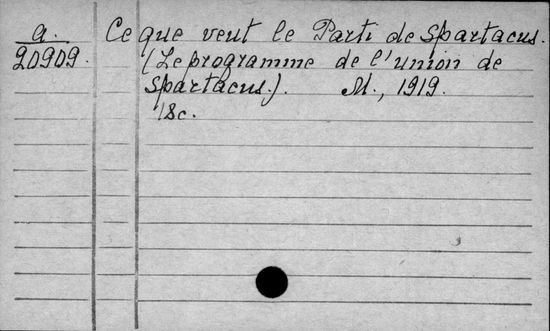 a.
20909.
Ce que veut le Parti de Spartacus.
(Le programme de l'union de
Spartacus.). M., 1919.
18c.